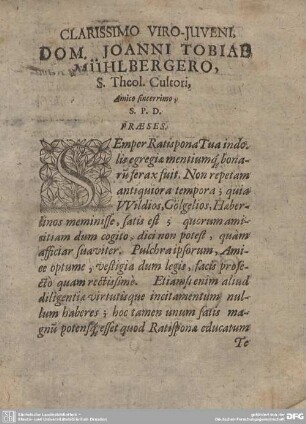 CLARISSIMO VIRO-JUVENI,
DOM. JOANNI TOBIAE
MÜHLBERGERO,
S. Theol. Cultori,
Amico sincerrimo,
S. P. D.
PRÆSES.
SEmper Ratispona Tua indo-
lis egregiæ mentiumq; bona-
rũ ferax fuit. Non repetam
antiquiora tempora; quia
Wildios, Gölgelios, Haber-
linos meminisse, satis est; quorum ami-
citiam dum cogito, dici non potest, quàm
afficiar suaviter. Pulchra ipsorum, Ami-
ce optume, vestigia dum legis, facis profe-
ctò quàm rectissimè. Etiamsi enim aliud
diligentiæ virtutisque incitamentum nul-
lum haberes; hoc tamen unum satis ma-
gnũ potensq; esset quod Ratispona educatum
Te